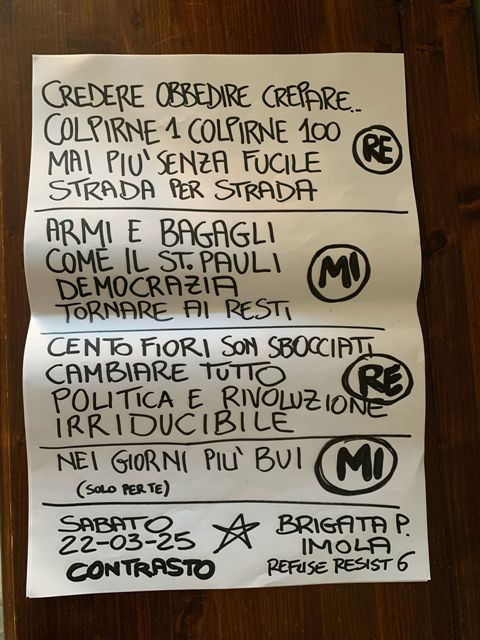 CREDERE OBBEDIRE CREPARE..
COLPIRNE 1 COLPIRNE 100
MAI PIU' SENZA FUCILE
STRADA PER STRADA
RE
ARMI E BAGAGLI
COME IL ST. PAULI
DEMOCRAZIA
TORNARE AI RESTI
MI
CENTO FIORI SON SBOCCIATI
CAMBIARE TUTTO
POLITICA E RIVOLUZIONE
IRRIDUCIBILE
RE
NEI GIORNI PIU' BUI
(SOLO PER TE)
MI
SABATO
22-03-25
CONTRASTO
BRIGATA P.
IMOLA
REFUSE RESIST 6